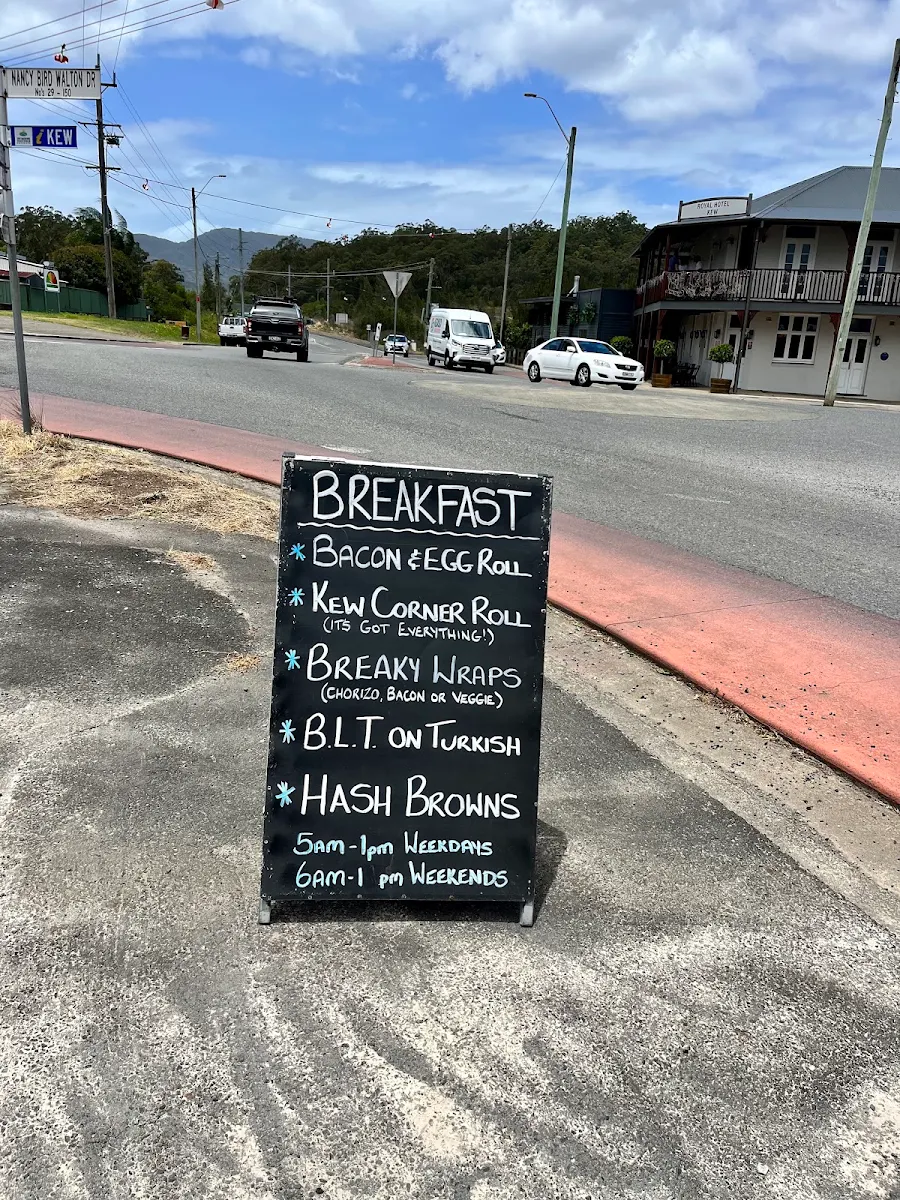 NANCY BIRD WALTON DR
No's 29 - 150
KEW
ROYAL HOTEL
KEW
BREAKFAST
* BACON & EGG ROLL
* KEW CORNER ROLL
(IT'S GOT EVERYTHING!)
* BREAKY WRAPS
(CHORIZO, BACON OR VEGGIE)
* B.L.T. ON TURKISH
* HASH BROWNS
5AM-1pm WEEKDAYS
6AM-1 pm WEEKENDS